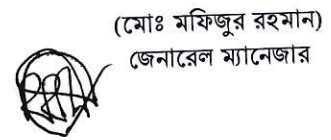 (মোঃ মফিজুর রহমান)
জেনারেল ম্যানেজার